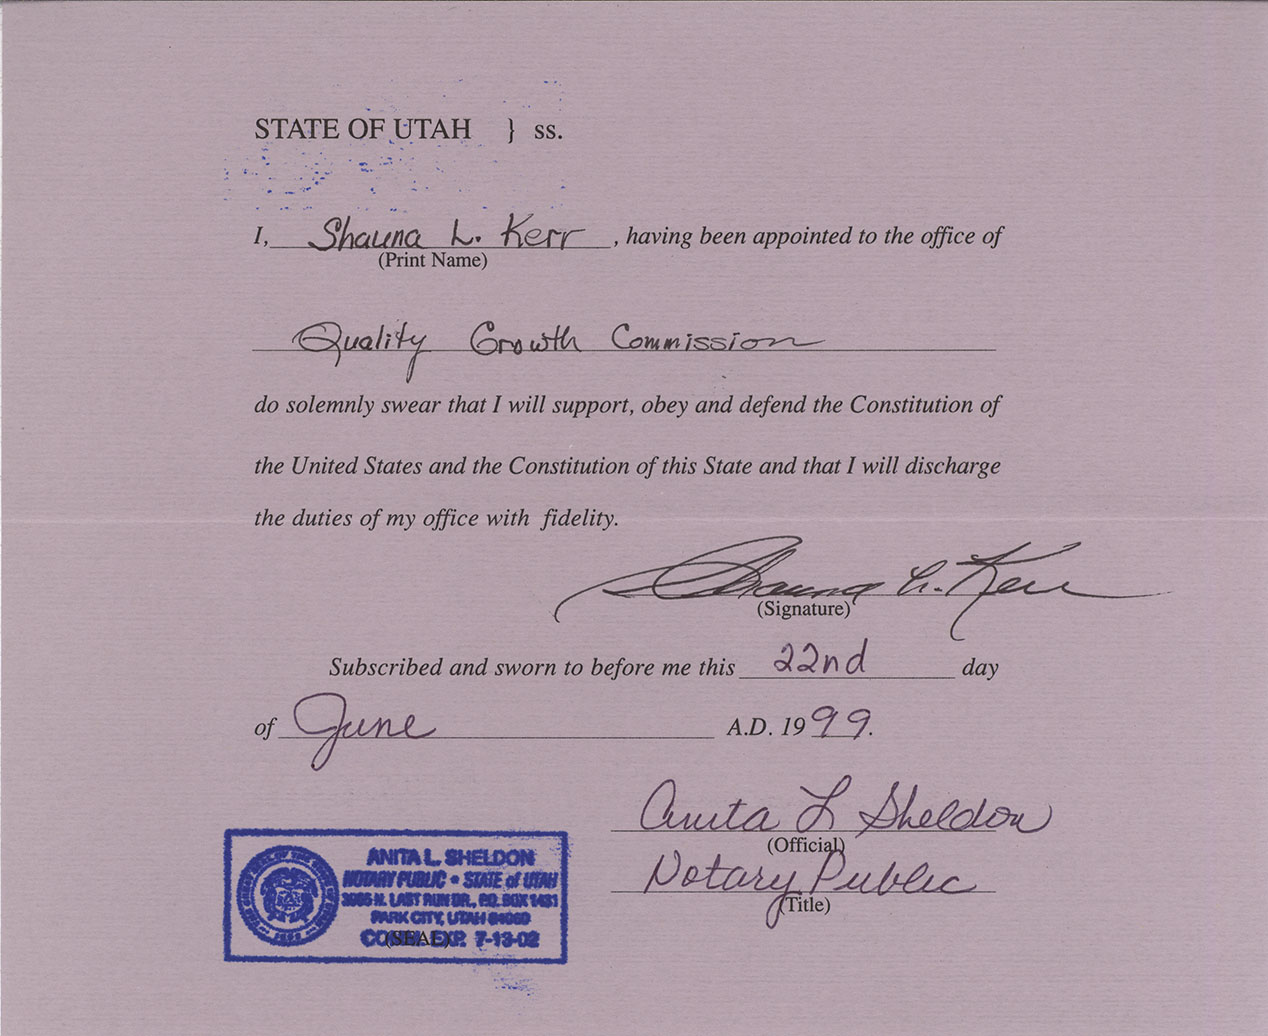 STATE OF UTAH } ss.
I, Shauna L. Kerr, having been appointed to the office of
(Print Name)
Quality Growth Commission
do solemnly swear that I will support, obey and defend the Constitution of
the United States and the Constitution of this State and that I will discharge
the duties of my office with fidelity.
Shauna L. Kerr
(Signature)
Subscribed and sworn to before me this 22nd day
of June A.D. 1999.
Anita L Sheldon
(Official)
Notary Public
(Title)
ANITA L. SHELDON
NOTARY PUBLIC • STATE of UTAH
N. LAST RUN DR., P.O. BOX 1431
PARK CITY, UTAH 84060
EXP. 7-13-02
(SEAL)